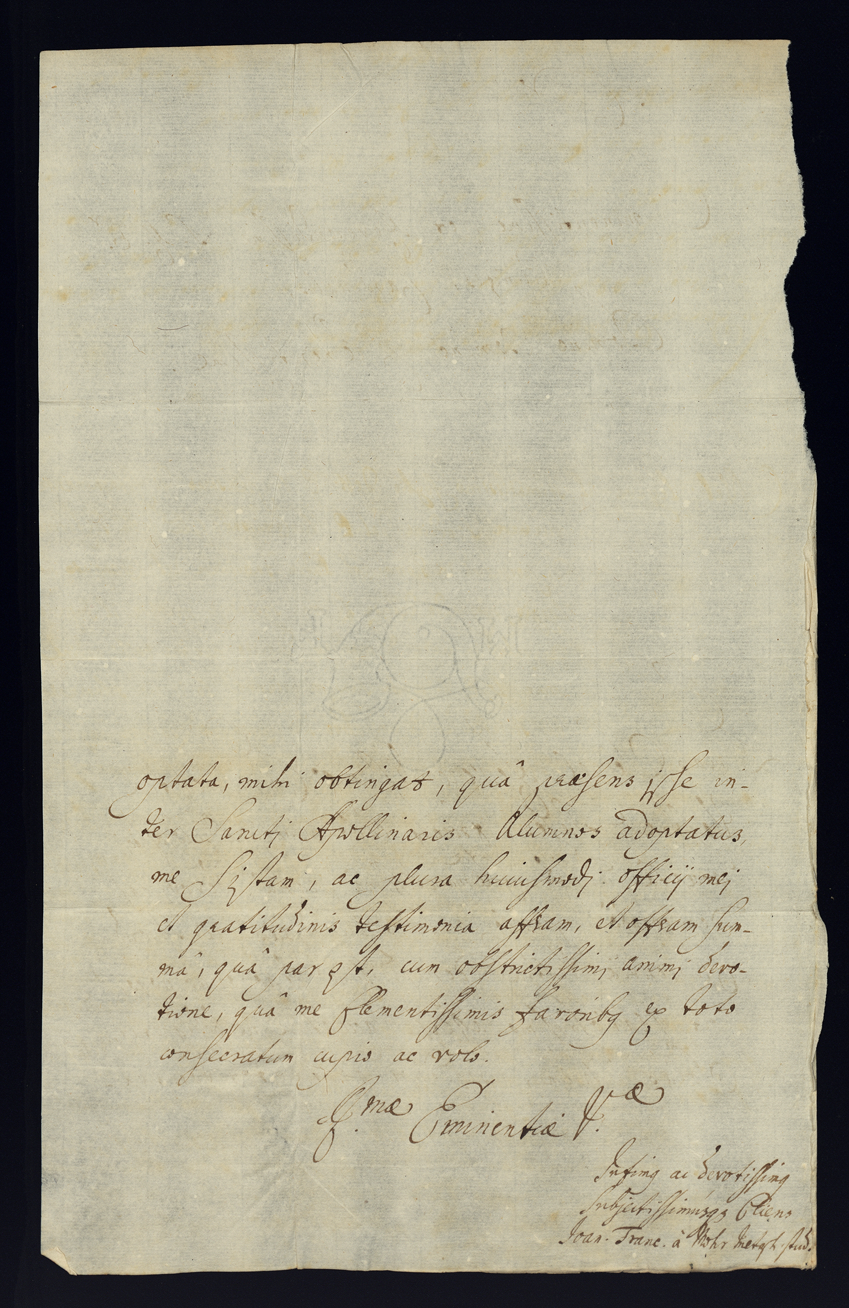 optata, mihi obtingat, quâ præsens ipse in-
ter Sancti Apollinaris Alumnos adoptatus,
me sistam, ac plura huiusmodi officij mei
et gratitudinis testimonia afferam, et offeram sum-
mâ, quâ par est, cum obstrictissimi animi devo-
tione, quâ me Clementissimis favoribus ex toto
consecratum cupio ac volo.
Emæ Eminentiæ V.æ
Intimus ac devotissimus
Subjectissimusque Cliens
Joan. Franc. à Mohr Metaph. stud.